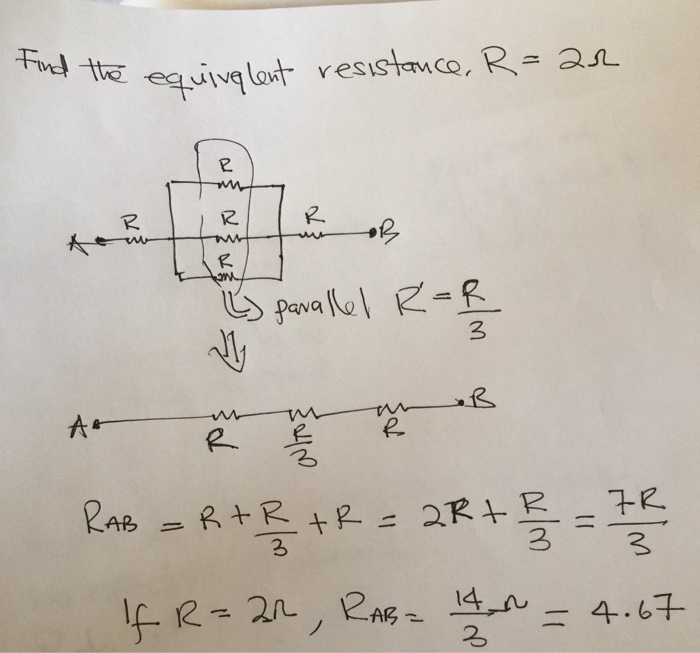 Find the equivalent resistance, R = 2Ω
R
R
R
R
A
B
R
parallel R' = R/3
A
B
R
R/3
R
R_AB = R + R/3 + R = 2R + R/3 = 7R/3
If R = 2Ω, R_AB = 14/3 Ω = 4.67